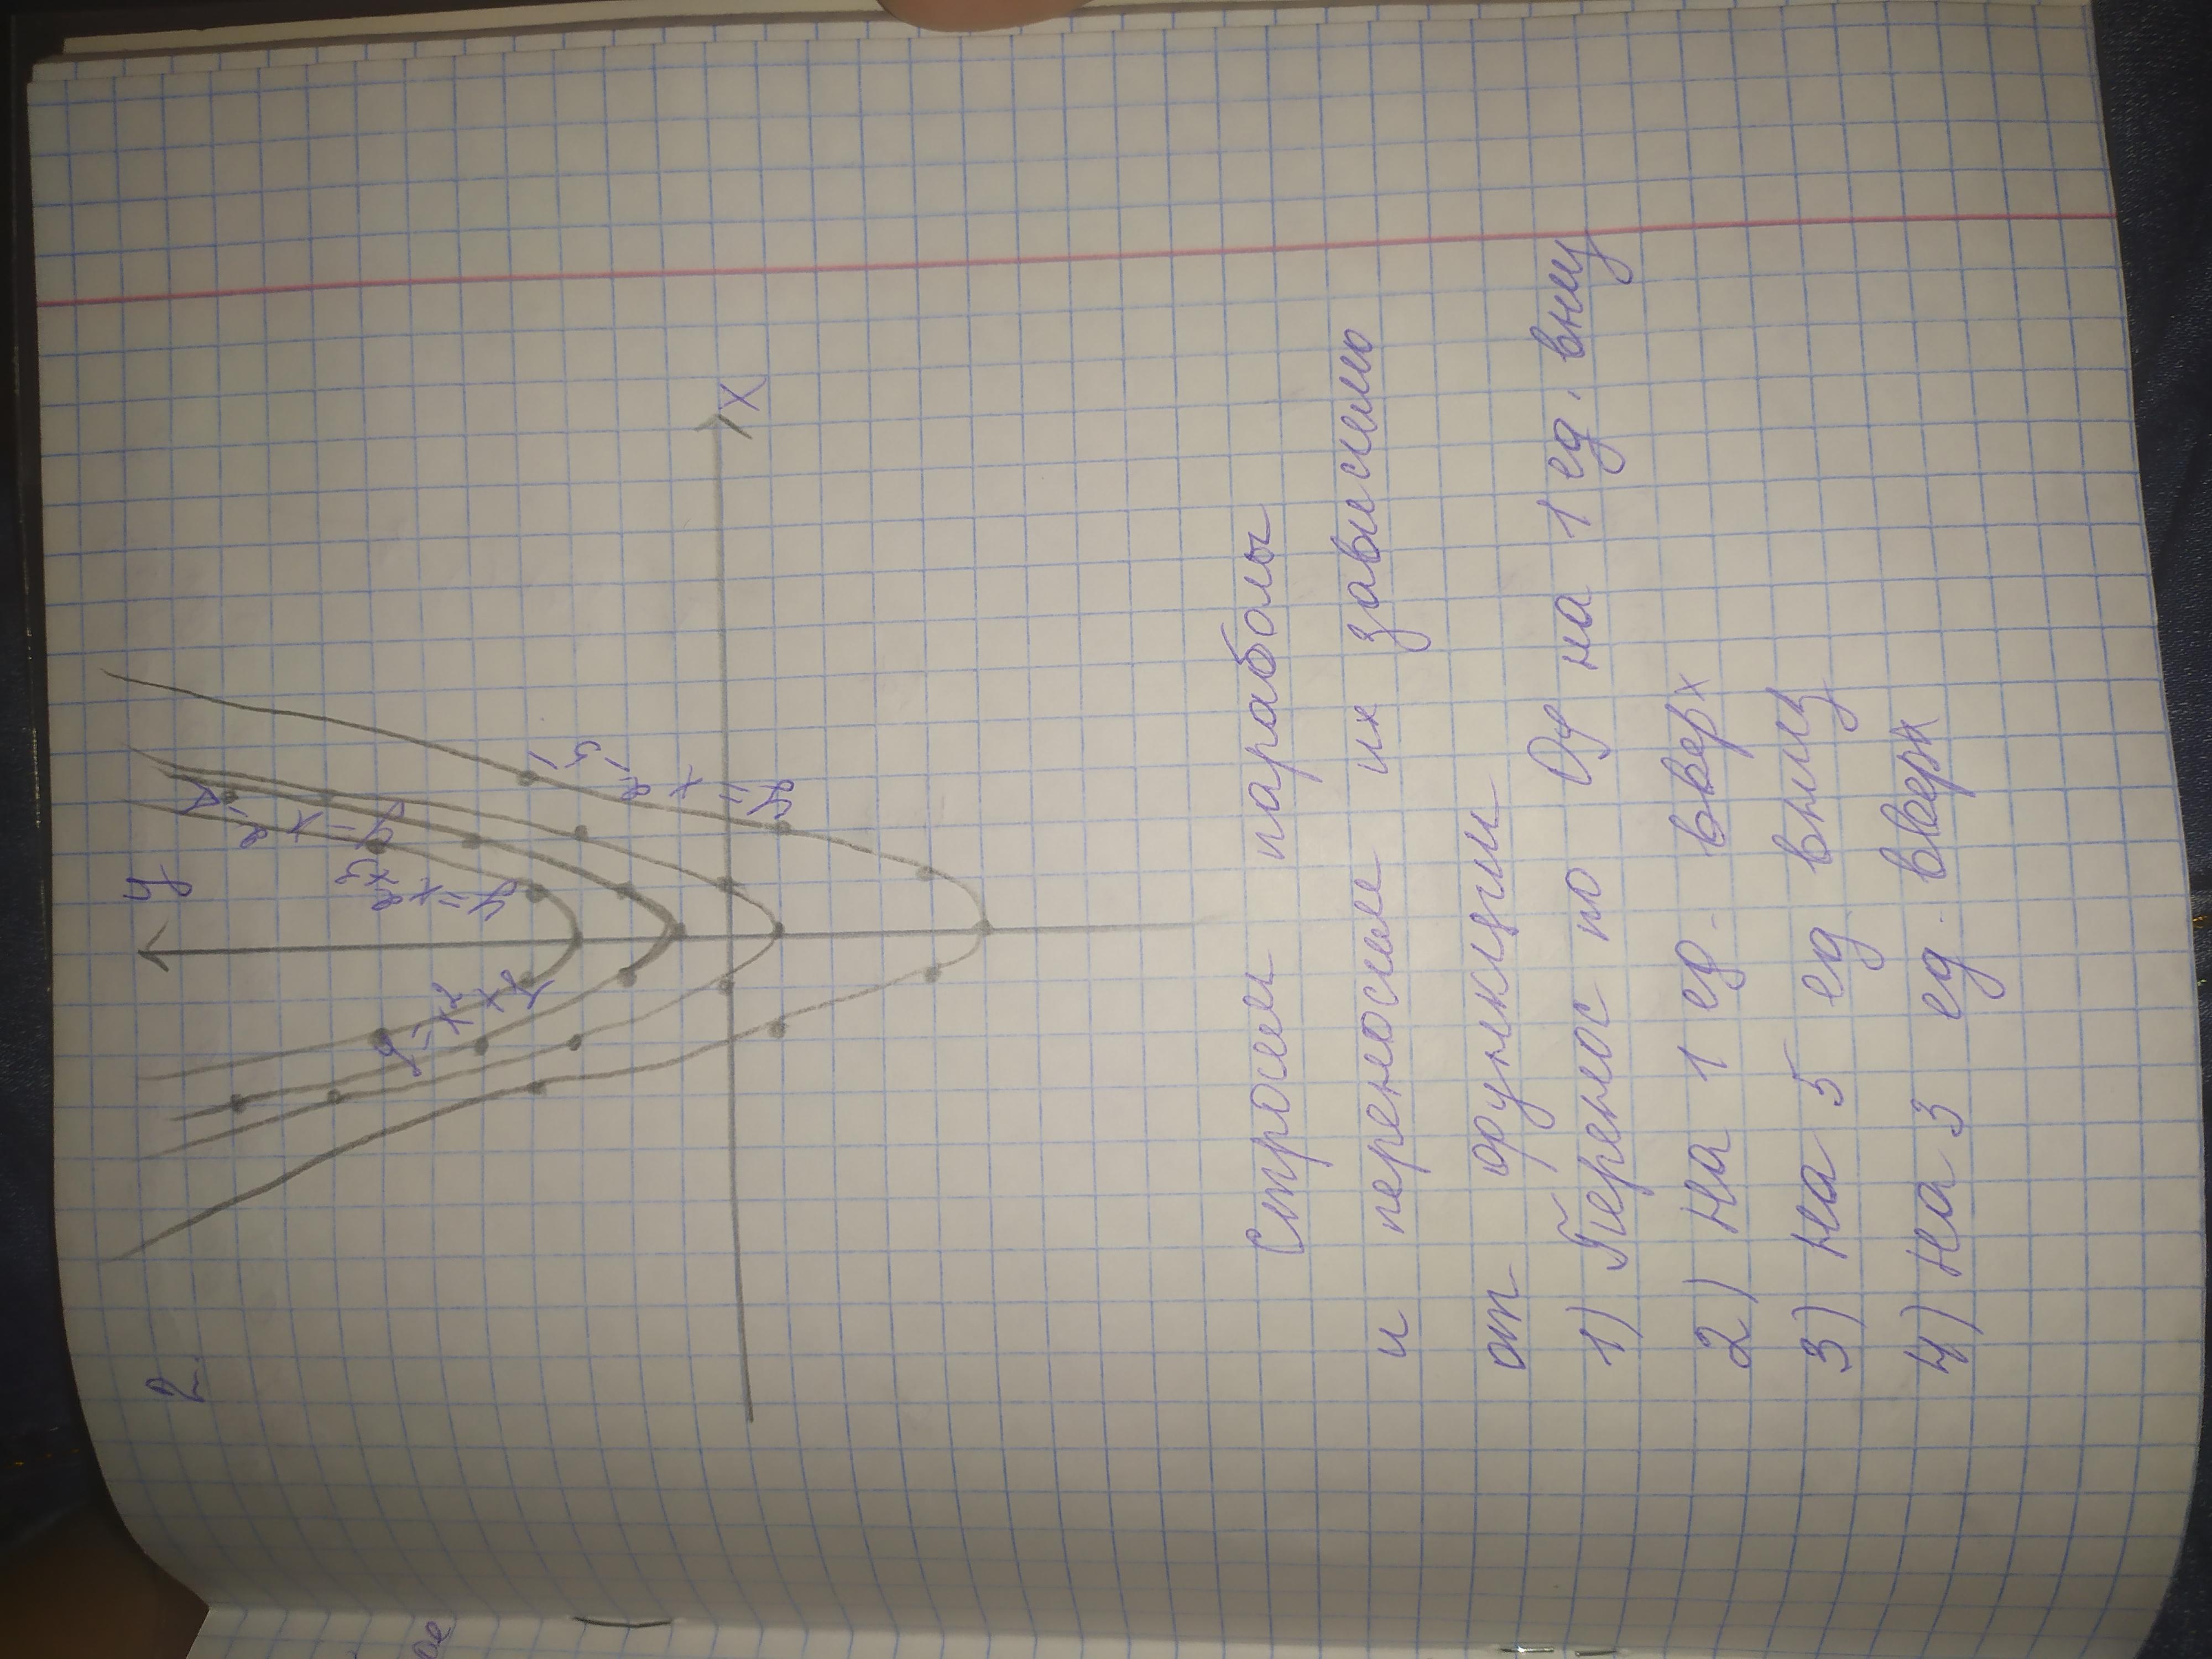 2.
y
x
y=x²-1
y=x²+1
y=x²-5
y=x²+3
Строим параболы
и переносим их зависимо
от функции
1) Перенос по Oy на 1 ед. вниз
2) На 1 ед. вверх
3) на 5 ед вниз
4) на 3 ед. вверх
ое